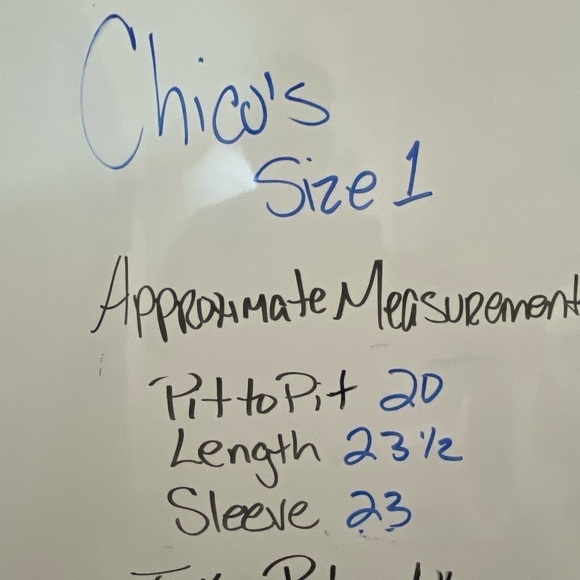 Chico's
Size 1
Approximate Measurement
Pit to Pit 20
Length 23 1/2
Sleeve 23